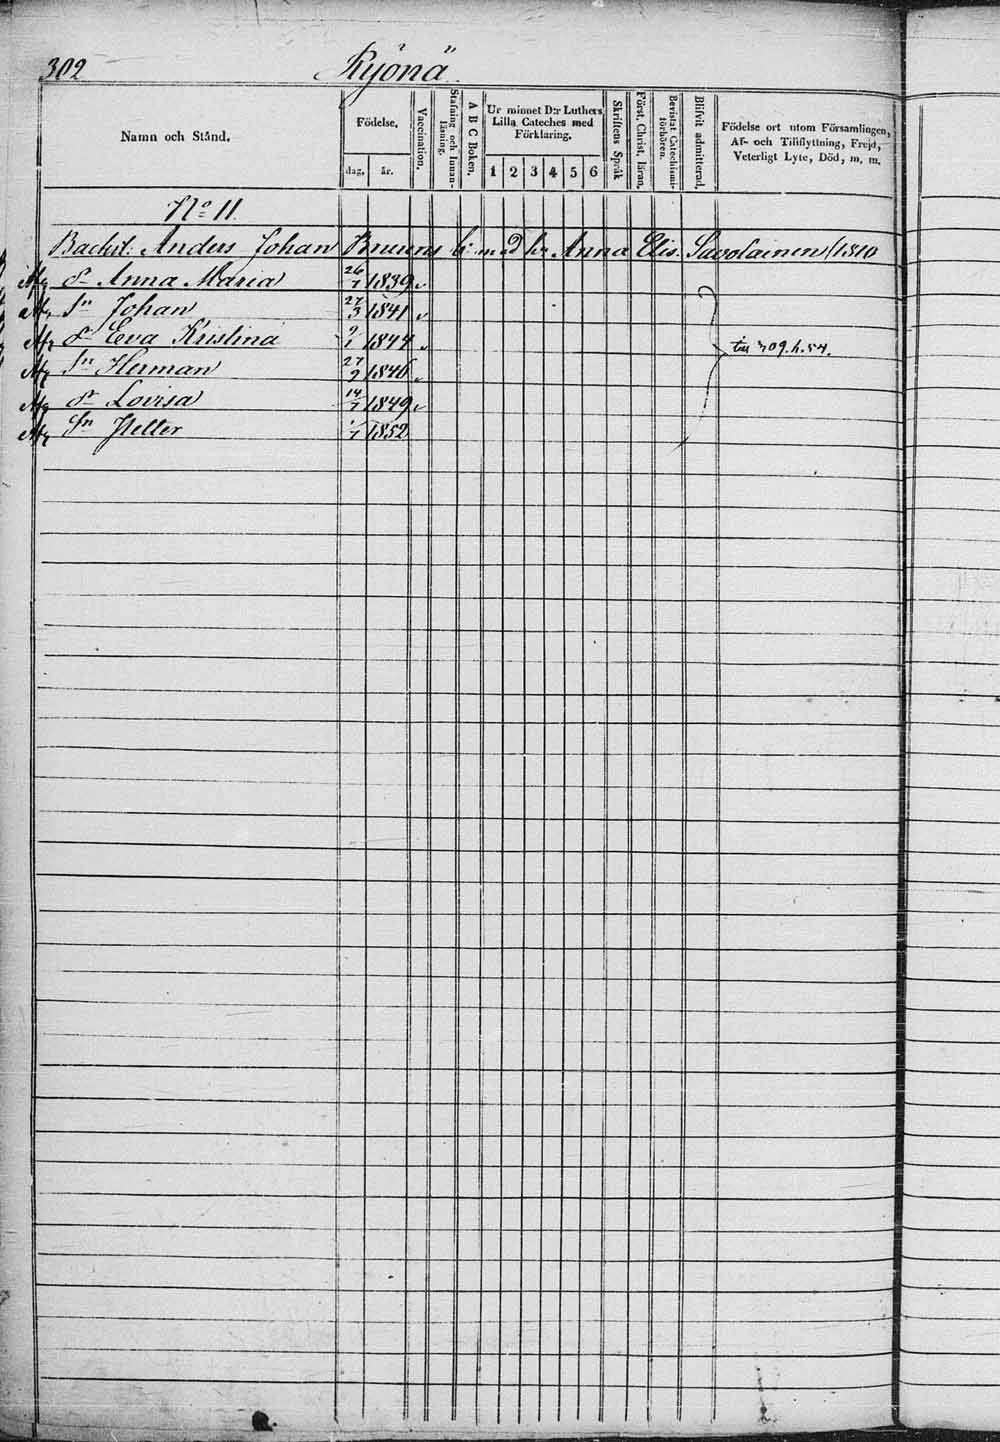 302 Kyönä
Namn och Stånd.
Födelse,
dag, år.
Vaccination.
Stafning och Innanläsning.
A B C Boken.
Ur minnet D:r Luthers Lilla Cateches med Förklaring.
1 2 3 4 5 6
Skriftens Språk
Först. Christ. läran.
Bevistat Catechismiförhören.
Blifvit admitterad.
Födelse ort utom Församlingen, Af- och Tillflyttning, Frejd, Veterligt Lyte, Död, m. m.
No 11.
Anders Johan Bruuns b: med h: Anna Elis. Savolainen /1810
dr Anna Maria 26/7 1839
Sn Johan 27/3 1841
dr Eva Kristina 9/1 1844 till 309. h. 54.
Sn Herman 27/9 1846
dr Lovisa 14/7 1849
Sn 1/7 1852